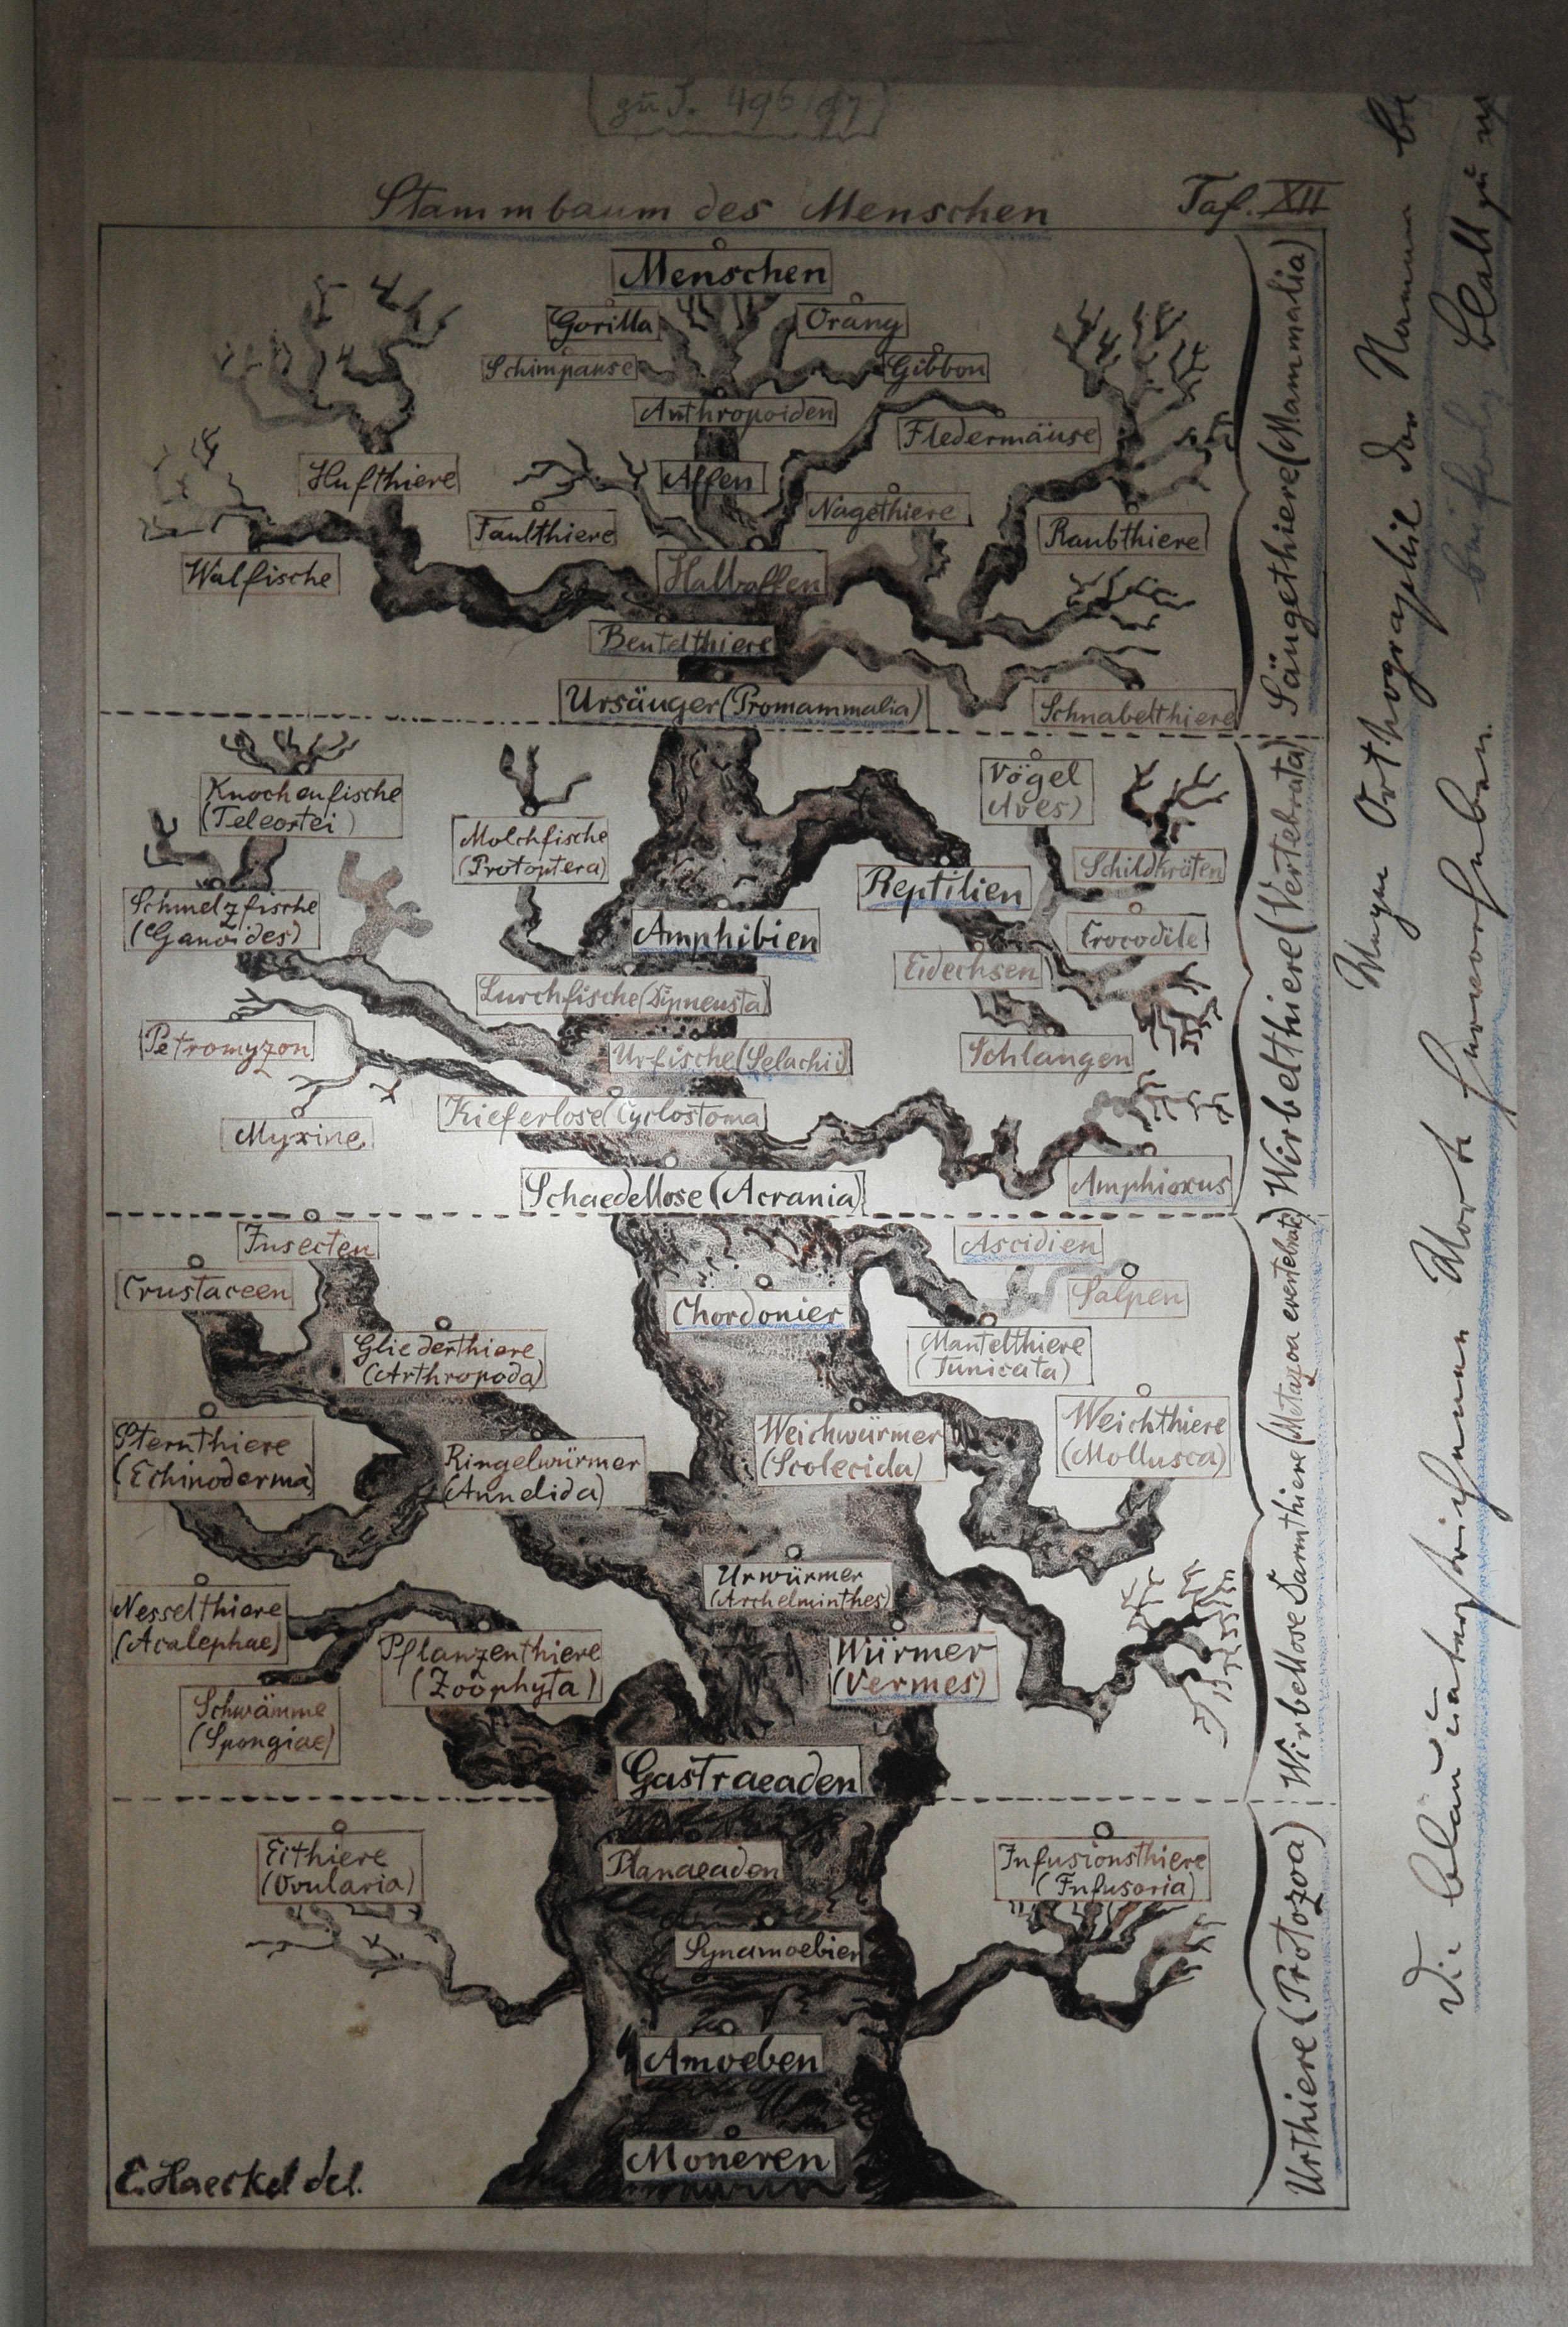 (zu S. 496/97)
Stammbaum des Menschen
Taf. XII
Menschen
Gorilla
Orang
Schimpanse
Gibbon
Anthropoiden
Fledermäuse
Hufthiere
Affen
Nagethiere
Faulthiere
Raubthiere
Walfische
Halbaffen
Beutelthiere
Ursäuger (Promammalia)
Schnabelthiere
Säugethiere (Mammalia)
Knochenfische
(Teleostei)
Molchfische
(Protoptera)
Vögel
(Aves)
Schildkröten
Reptilien
Schmelzfische
(Ganoides)
Amphibien
Crocodile
Eidechsen
Lurchfische (Dipneusta)
Petromyzon
Urfische (Selachii)
Schlangen
Kieferlose (Cyclostoma)
Myxine
Schaedellose (Acrania)
Amphioxus
Wirbelthiere (Vertebrata)
Insecten
Ascidien
Crustaceen
Salpen
Chordonier
Gliederthiere
(Arthropoda)
Mantelthiere
(Tunicata)
Sternthiere
(Echinoderma)
Ringelwürmer
(Annelida)
Weichwürmer
(Scolecida)
Weichthiere
(Mollusca)
Urwürmer
(Archelminthes)
Nesselthiere
(Acalephae)
Pflanzenthiere
(Zoophyta)
Würmer
(Vermes)
Schwämme
(Spongiae)
Gastraeaden
Wirbellose Darmthiere (Metazoa evertebrata)
Eithiere
(Ovularia)
Planaeaden
Infusionsthiere
(Infusoria)
Synamoebien
Amoeben
Moneren
Urthiere (Protozoa)
E. Haeckel del.
Wegen Orthographie der Namen
Blatt zu
Die blau unterstrichenen Worte hervorheben.